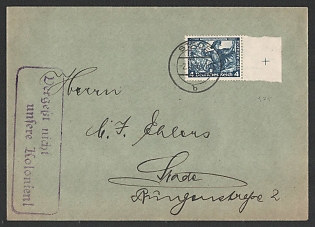 Vergeßt nicht
unsere Kolonien!
4 Deutsches Reich 4
b
Herrn
C. F. Ehlers
Stade